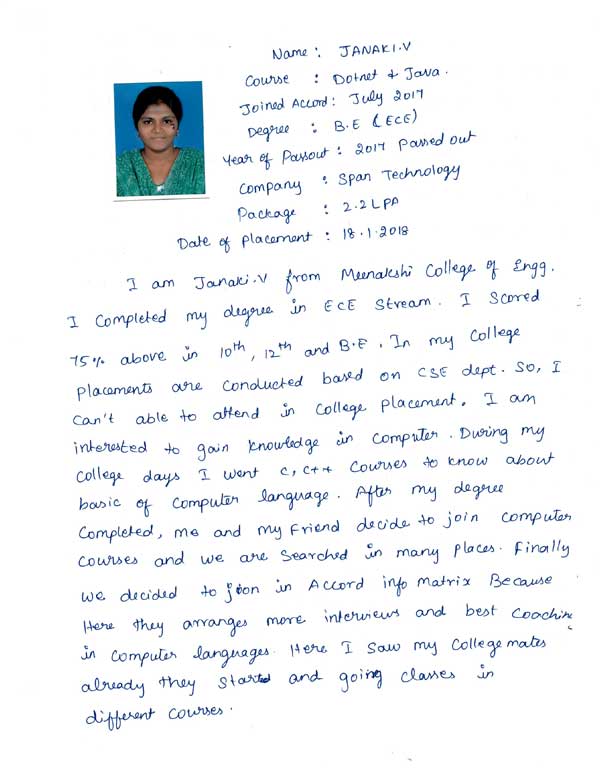 Name : JANAKI.V
Course : Dotnet & Java.
Joined Accord : July 2017
Degree : B.E (ECE)
Year of Passout : 2017 Passed out
Company : Span Technology
Package : 2.2 LPA
Date of Placement : 18.1.2018
I am Janaki.V from Meenakshi College of Engg.
I Completed my degree in ECE Stream. I Scored
75% above in 10th, 12th and B.E. In my College
Placements are conducted based on CSE dept. So, I
Can't able to attend in College Placement. I am
interested to gain knowledge in Computer. During my
College days I went C, C++ Courses to know about
basic of Computer language. After my degree
Completed, me and my Friend decide to join Computer
Courses and we are Searched in many Places. Finally
we decided to join in Accord info Matrix Because
Here they arranges more interviews and best Coaching
in Computer languages. Here I Saw my College mates
already they Started and going classes in
different Courses.